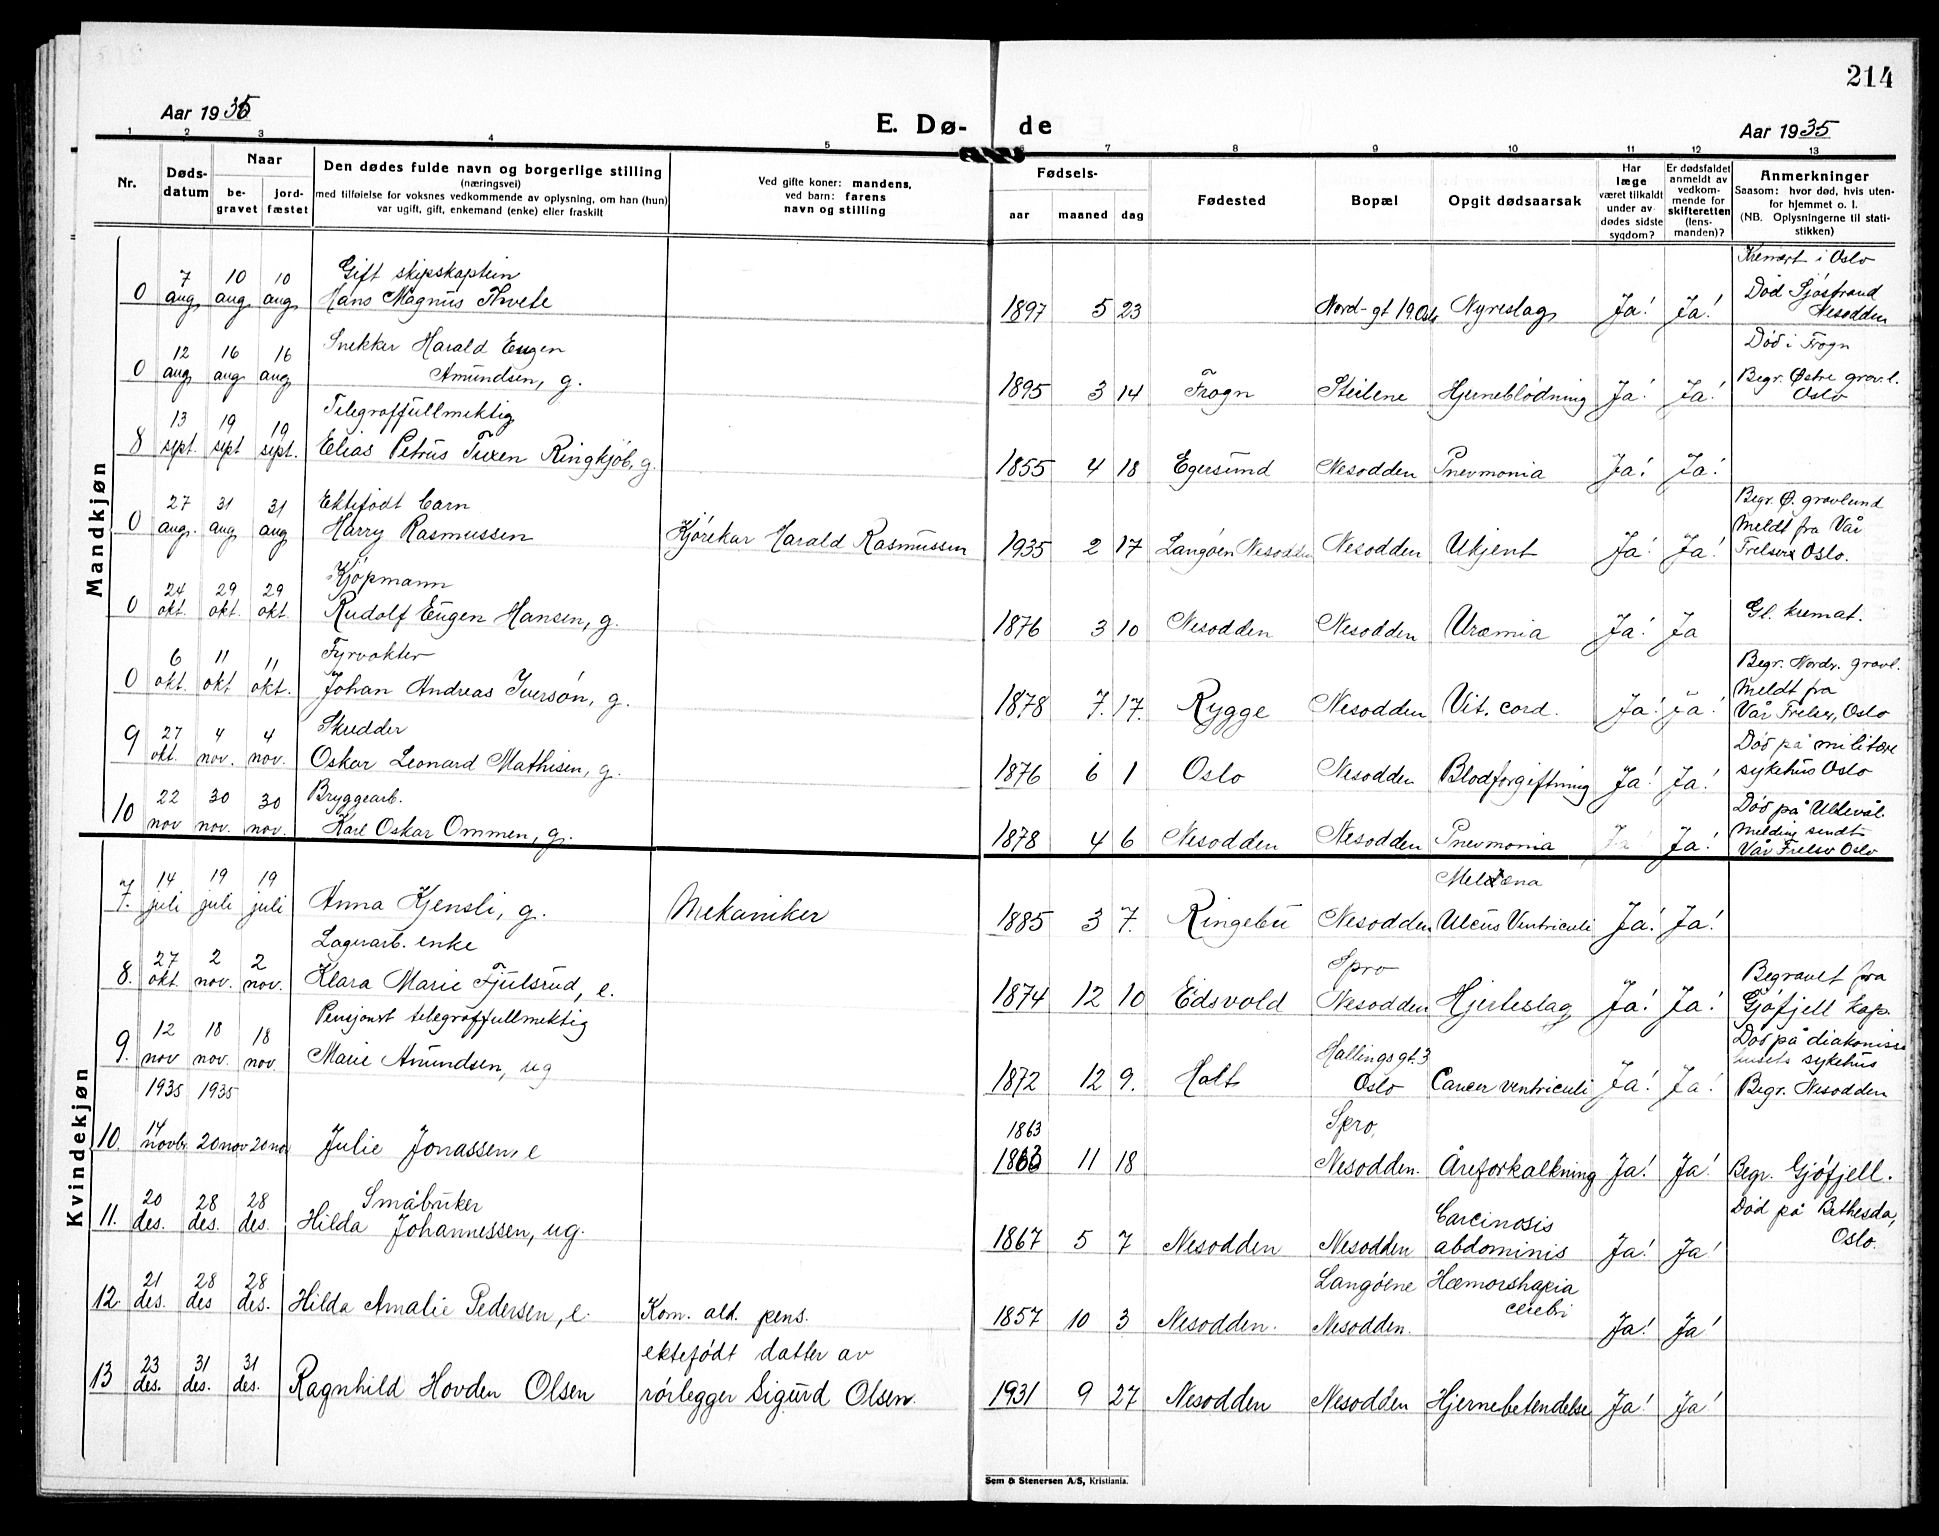 214
Aar 1935
E. Dø-de
Aar 1935
1 2 3 4 5 6 7 8 9 10 11 12 13
Nr.
Døds-
datum
Naar
be-
gravet
jord-
fæstet
Den dødes fulde navn og borgerlige stilling
(næringsvei)
med tilføielse for voksnes vedkommende av oplysning, om han (hun)
var ugift, gift, enkemand (enke) eller fraskilt
Ved gifte koner: mandens,
ved barn: farens
navn og stilling
Fødsels-
aar
maaned
dag
Fødested
Bopæl
Opgit dødsaarsak
Har
læge
været tilkaldt
under av-
dødes sidste
sygdom?
Er dødsfaldet
anmeldt av
vedkom-
mende for
skifteretten
(lens-
manden)?
Anmerkninger
Saasom: hvor død, hvis uten-
for hjemmet o. l.
(NB. Oplysningerne til stati-
stikken)
Mandkjøn
0 7 aug. 10 aug. 10 aug. Gift skipskaptein
Hans Magnus Thvete 1897 5 23 Nord-gt 19. Oslo Nyreslag Ja! Ja! Kremert i Oslo
Død Sjöstrand
Nesodden
0 12 aug. 16 aug 16 aug. Snekker Harald Eugen
Amundsen, g. 1895 3 14 Frogn Steilene Hjerneblödning Ja! Ja! Död i Frogn
Begr. Østre gravl.
Oslo
8 13 sept. 19 sept 19 sept. Telegraffullmektig
Elias Petrus Tuxen Ringkjöb, g. 1855 4 18 Egersund Nesodden Pnevmonia Ja! Ja!
0 27 aug. 31 aug 31 aug Ektefödt barn
Harry Rasmussen Kjörekar Harald Rasmussen 1935 2 17 Langöen Nesodden Nesodden Ukjent Ja! Ja! Begr. Ø. gravlund
Meldt fra Vår
Frelsers Oslo.
0 24 okt. 29 okt. 29 okt. Kjöpmann
Rudolf Eugen Hansen, g. 1876 3 10 Nesodden Nesodden Uræmia Ja! Ja Gl. kremat.
0 6 okt. 11 okt 11 okt. Fyrvokter
Johan Andreas Iversön, g. 1878 7. 17. Rygge Nesodden Vit. cord. Ja! Ja! Begr. Nordr. gravl.
Meldt fra
Vår Frelser, Oslo
9 27 okt. 4 nov. 4 nov. Skredder
Oskar Leonard Mathisen, g. 1876 6 1 Oslo Nesodden Blodforgiftning Ja! Ja! Död på militære
sykehus Oslo
10 22 nov 30 nov. 30 nov. Bryggearb.
Karl Oskar Ommen, g. 1878 4 6 Nesodden Nesodden Pnevmonia Ja! Ja! Död på Ullevål.
Melding sendt
Vår Frelser Oslo
Kvindekjøn
7. 14 juli 19 juli 19 juli Anna Kjensli, g. Mekaniker 1885 3 7. Ringebu Nesodden Melæna
Ulcus Ventriculi Ja! Ja!
8. 27 okt. 2 nov. 2 nov. Lagerarb. enke
Klara Marie Fjulsrud, e. 1874 12 10 Eidsvold Spro
Nesodden Hjerteslag Ja! Ja! Begravet fra
Gjöfjell kap.
9. 12 nov 18 nov. 18 nov Pensjonert telegraffullmektig
Marie Amundsen, ug 1872 12 9. Holt Hallings gt. 3
Oslo Cancer ventriculi Ja! Ja! Död på diakonisse
husets sykehus
Begr. Nesodden
1935 1935
10. 14 novbr 20 nov 20 nov Julie Jonassen, e 1863
1863 11 18 Spro,
Nesodden. Åreforkalkning Ja! Ja! Begr. Gjöfjell.
11. 20 des. 28 des. 28 des. Småbruker
Hilda Johannessen, ug. 1867 5 7 Nesodden Nesodden Carcinosis
abdominis Ja! Ja! Död på Bethesda,
Oslo.
12. 21 des. 28 des 28 des. Hilda Amalie Pedersen, e. Kom. ald. pens. 1857 10 3 Nesodden. Langöene
Nesodden. Hæmorshagia
cerebri Ja! Ja!
13 23 des. 31 des. 31 des. Ragnhild Hovden Olsen ektefödt datter av
rörlegger Sigurd Olsen. 1931 9 27 Nesodden Nesodden Hjernebetendelse Ja! Ja!
Sem & Stenersen A/S, Kristiania.